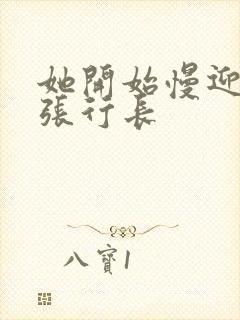 她開始慢迎
張行長
八寶1